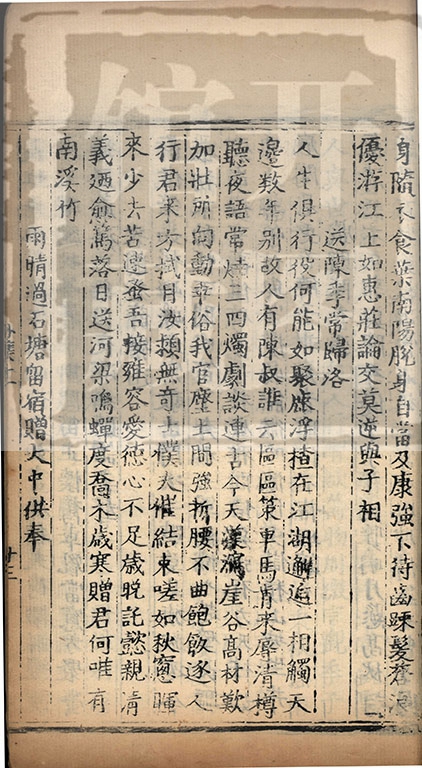 身隨衣食葉南陽脫身自當及康強不待齒踈髮蒼
優游江上如惠莊論交莫逆與子相
送陳季常歸洛
人生俱行役何能如聚麻浮楂在江湖邂逅一相觸天
邊數年別故人有陳叔誰云區區策車馬肯來辱清樽
聽夜語常燒三四燭劇談連古今天漢瀉崖谷高材歎
加壯所向動幸俗我官塵土間強折腰不曲飽飯逐人
行君來方拭目汝頻無奇士僕夫催結束嗟如秋窻暉
來少去苦速蚤吾接雍容愛德心不足歲晚託懿親情
義廼愈篤落日送河梁鳴蟬度喬木歲寒贈君何唯有
南溪竹
雨晴過石塘留宿贈大中供奉
外集二
廿三